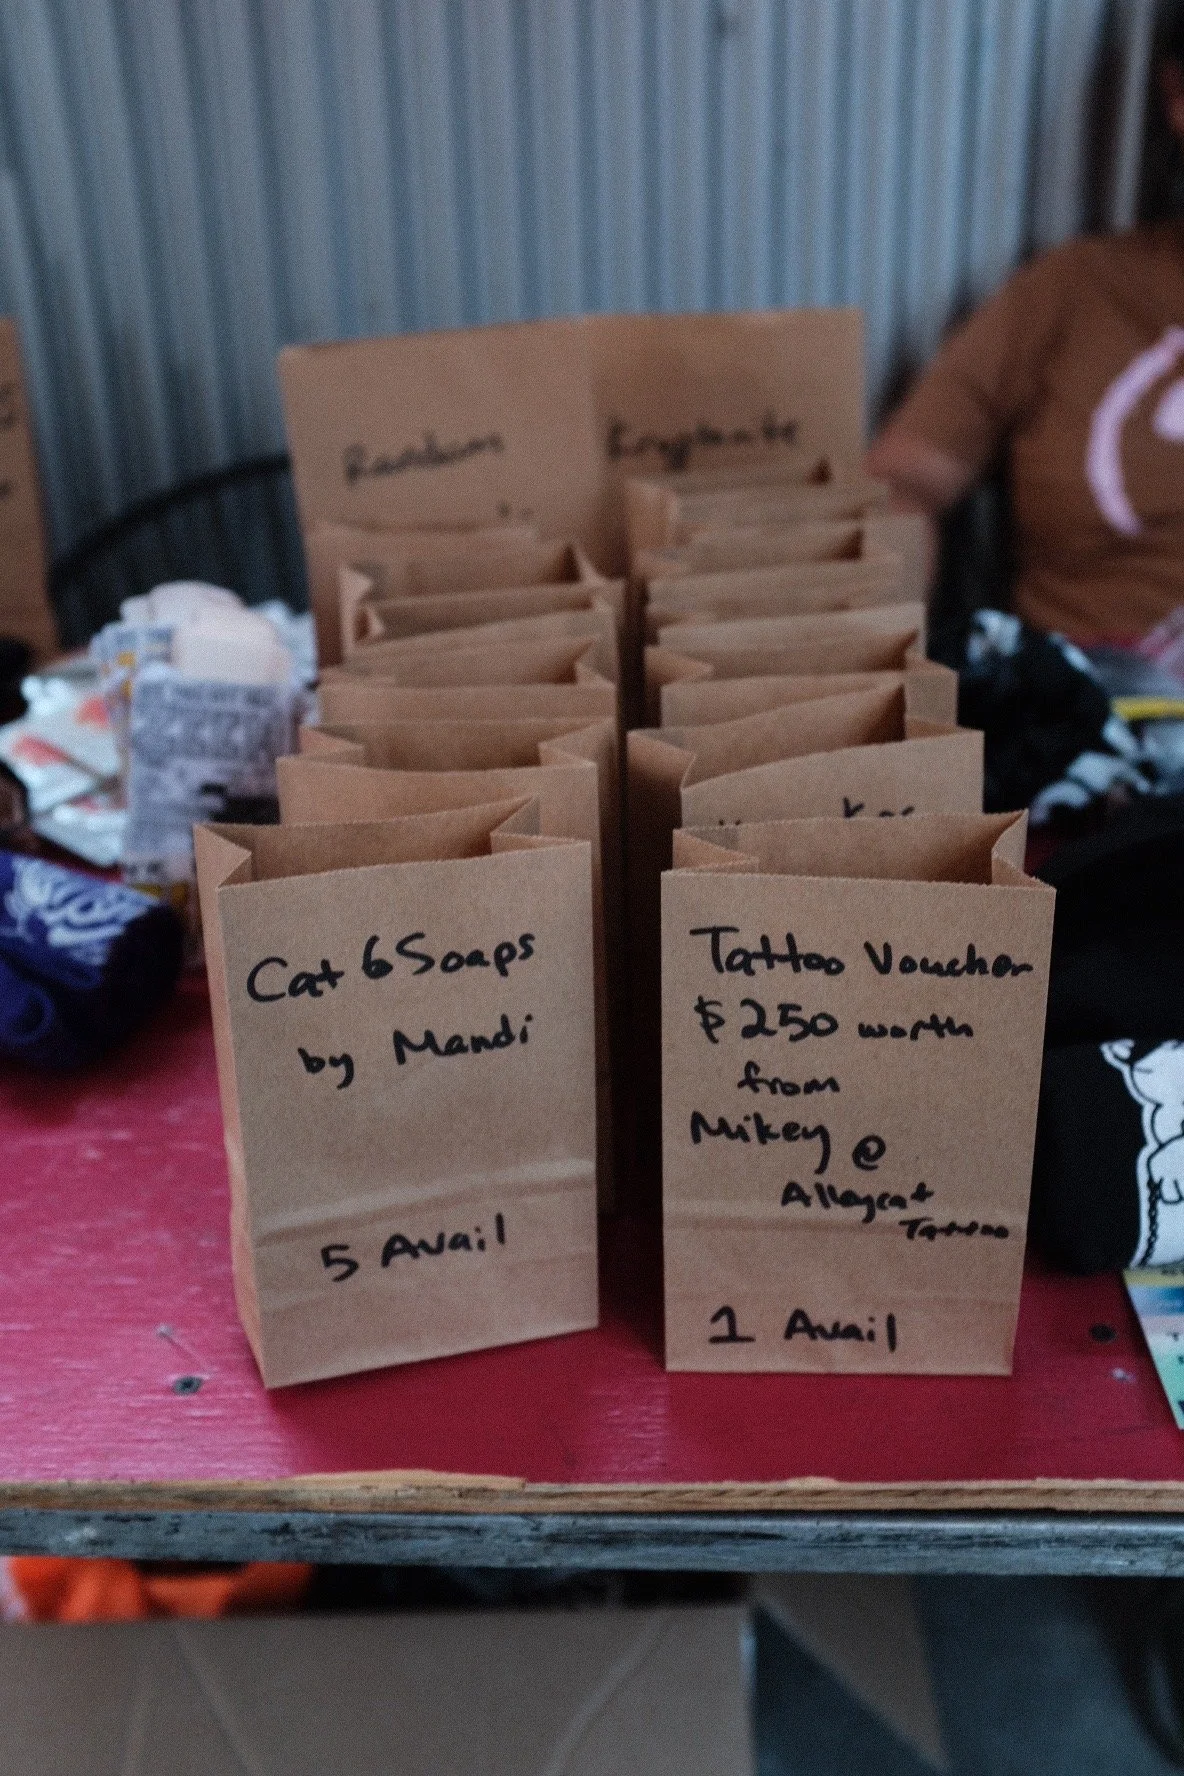 Random Kryptonite
Cat 6 Soaps
by Mandi
5 Avail
Tattoo Voucher
$250 worth
from
Mikey @
Alleycat
Tattoo
1 Avail